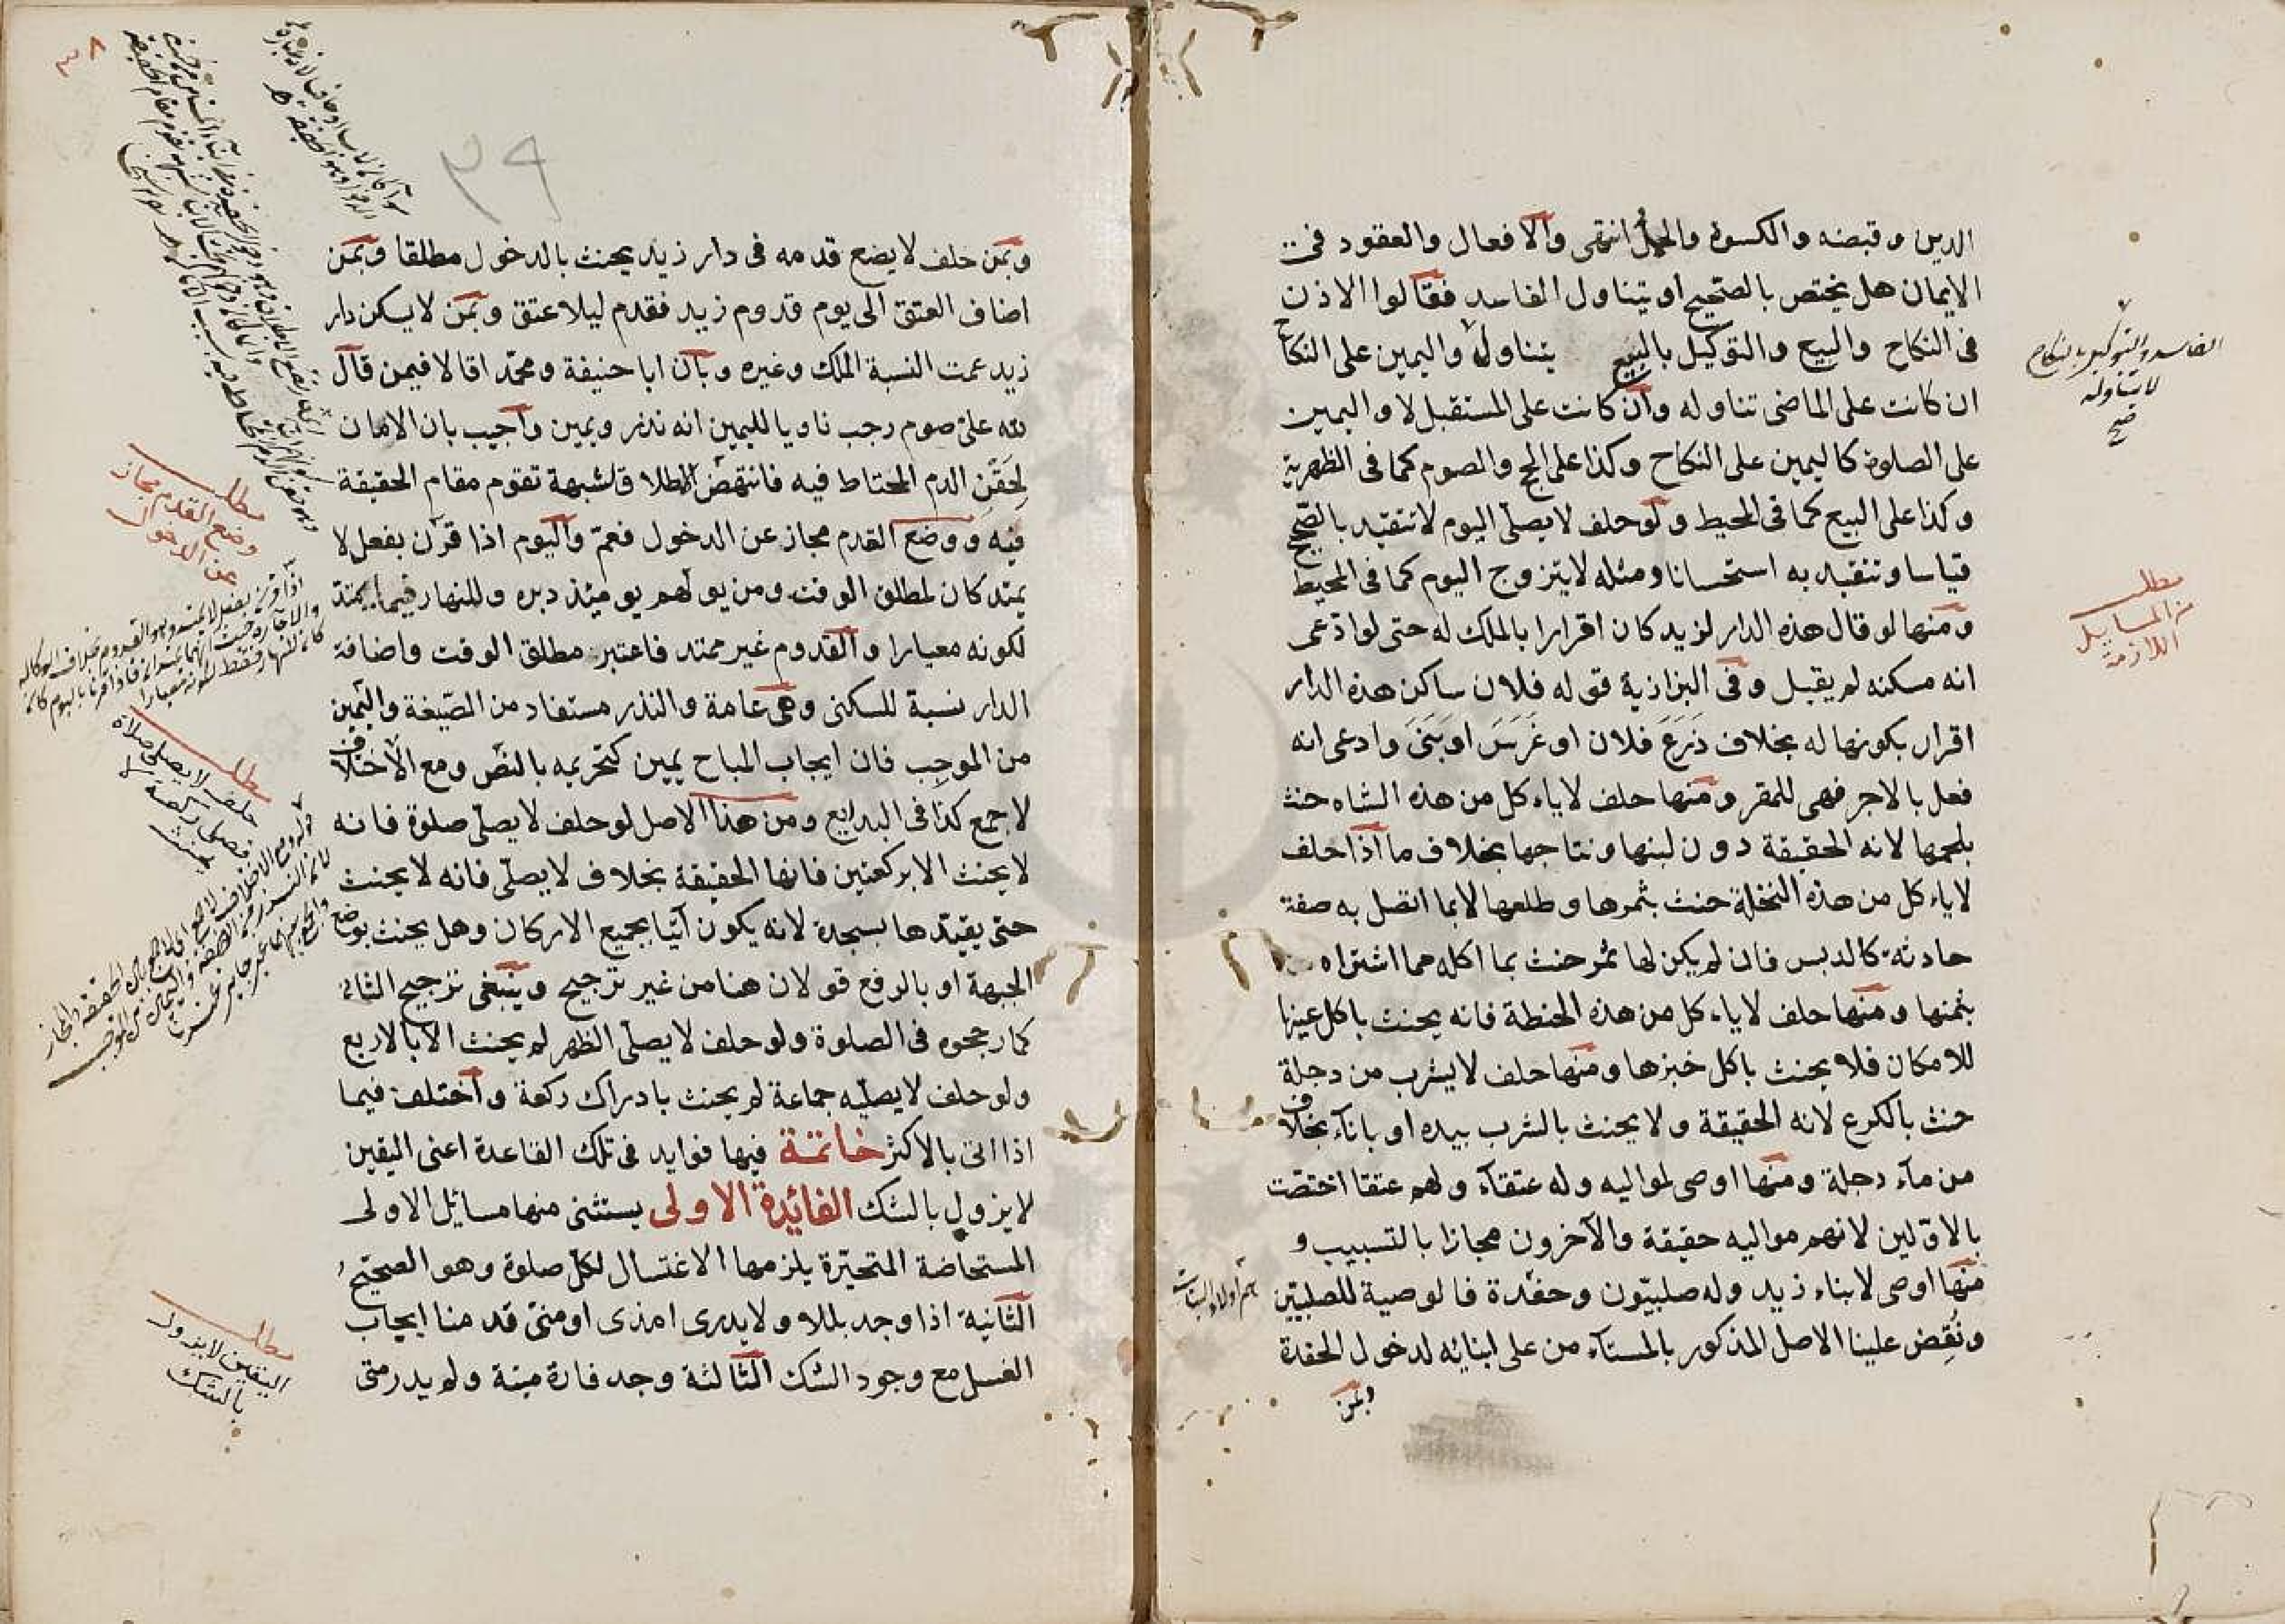 الدين وقبضه والكسوة والحمل انتهى والافعال والعقود في
الايمان هل يختص بالصحيح او يتناول الفاسد فقالوا الاذن
في النكاح والبيع والتوكيل بالبيع يتناول واليمين على النكاح
ان كانت على الماضى تناوله وان كانت على المستقبل لا واليمين
على الصلوة كاليمين على النكاح وكذا على الحج والصوم كما فى الظهرية
وكذا على البيع كما فى المحيط ولو حلف لا يصلى اليوم لا تتقيد بالصحيح
قياسا وتتقيد به استحسانا ومثله لا يتزوج اليوم كما فى المحيط
ومنها لو قال هذه الدار لزيد كان اقرارا بالملك له حتى لو ادعى
انه مسكنه لم يقبل وفى البزازية قوله فلان ساكن هذه الدار
اقرار بكونها له بخلاف زَرَعَ فلان او غَرَسَ او بَنَى وادعى انه
فعل بالاجر فهى للمقر ومنها حلف لا ياءكل من هذه الشاه حنث
بلحمها لانه الحقيقة دون لبنها ونتاجها بخلاف ما اذا حلف
لا ياءكل من هذه النخلة حنث بثمرها وطلعها لا بما اتصل به صفة
حادثة كالدبس فان لم يكن لها ثمر حنث بما اكله مما اشتراه
بثمنها ومنها حلف لا ياءكل من هذه الحنطة فانه يحنث باكل عينها
للامكان فلا يحنث باكل خبزها ومنها حلف لا يشرب من دجلة
حنث بالكرع لانه الحقيقة ولا يحنث بالشرب بيده او باناء بخلاف
من ماء دجلة ومنها اوصى لمواليه وله عتقاء ولهم عتقا اختصت
بالاولين لانهم مواليه حقيقة والآخرون مجازا بالتسبيب و
منها اوصى لابناء زيد وله صلبيّون وحفدة فالوصية للصلبيّين
ونُقِض علينا الاصل المذكور بالمستآمن على ابنائه لدخول الحفدة
وبمن
الفاسد والتوكيل بالنكاح
لا يتناوله
صح
مطلب
من المسايل
اللازمة
وبمن حلف لا يضع قدمه فى دار زيد يحنث بالدخول مطلقا وبمن
اضاف العتق الى يوم قدوم زيد فقدم ليلا عتق وبمن لا يسكن دار
زيد عمت النسبة الملك وغيره وبان ابا حنيفة ومحمّد اقالا فيمن قال
لله علىّ صوم رجب ناويا لليمين انه نذر ويمين واجيب بان الامان
لحَقْنِ الدم المحتاط فيه فانتهض الاطلاق لشبهة تقوم مقام الحقيقة
فيه ووضع القدم مجاز عن الدخول فعمّ واليوم اذا قرن بفعل لا
يمتد كان لمطلق الوقت ومن يولهم يومئذ دبره وللنهار فيما يمتد
لكونه معيارا والقدوم غير ممتد فاعتبر مطلق الوقت واضافة
الدار نسبة للسكنى وهى عامة والنذر مستفاد من الصّيغة واليمين
من الموجِب فان ايجاب المباح يمين كتحريمه بالنصّ ومع الاختلاف
لا جمع كذا فى البدايع ومن هذا الاصل لو حلف لا يصلّى صلوة فانه
لا يحنث الا بركعتين فانها الحقيقة بخلاف لا يصلّى فانه لا يحنث
حتى يقيّدها بسجدة لانه يكون آتيا بجميع الاركان وهل يحنث بوضع
الجبهة او بالرفع قولان هنا من غير ترجيح وينبغى ترجيح الثانى
كما رجحوه فى الصلوة ولو حلف لا يصلّى الظهر لم يحنث الا بالاربع
ولو حلف لا يصلّيه جماعة لم يحنث بادراك ركعة واختلف فيما
اذا اتى بالاكثر خاتمة فيها فوايد فى تلك القاعدة اعنى اليقين
لا يزول بالشك الفائدة الاولى يستثنى منها مسائل الاولى
المستحاضة المتحيّرة يلزمها الاغتسال لكل صلوة وهو الصحيح
الثانية اذا وجد بللا ولا يدرى امذى او منىّ قدمنا ايجاب
الغسل مع وجود الشك الثالثة وجد فارة ميتة ولم يدر متى
٣٩
٣٨
مطلب
وضع القدم مجاز
عن الدخول
مطلب
حلف لا يصلى صلاة
فصلى ركعة لا
يحنث
مطلب
اليقين لا يزول
بالشك